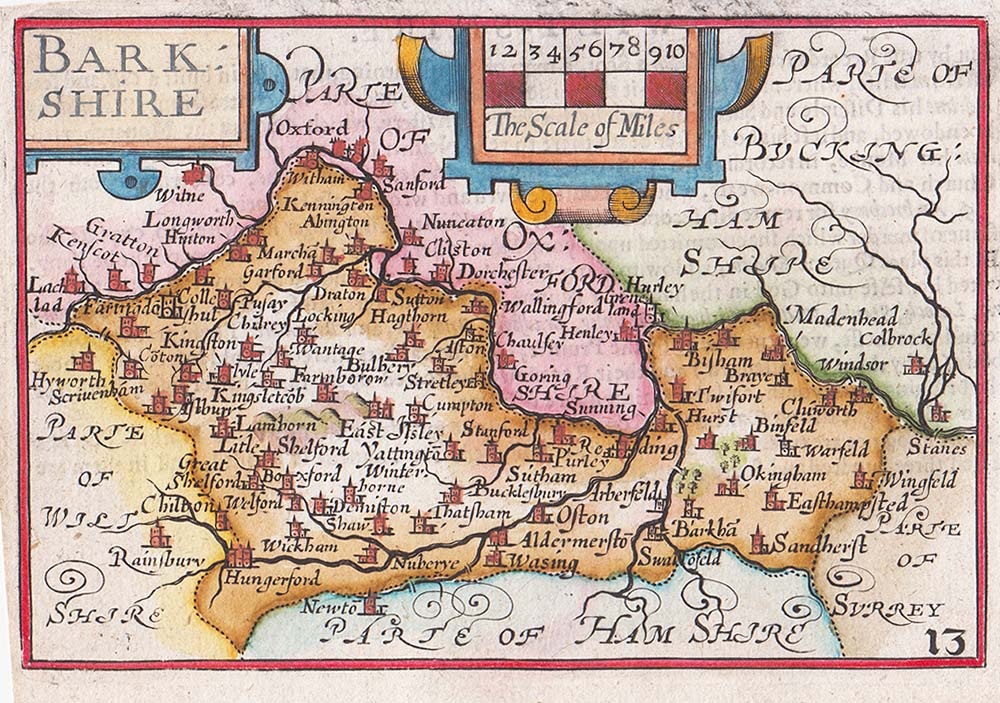 BARK:
SHIRE
1 2 3 4 5 6 7 8 9 10
The Scale of Miles
PARTE
OF
OX:
FORD
SHIRE
PARTE OF
BUCKING:
HAM
SHIRE
Oxford
Witham
Sanford
Witne
Kennington
Abington
Nuneaton
Longworth
Hinton
Clifton
Gratton
Kenscot
Marchā
Garford
Dorchester
Lach
lad
Farindō
Colle
shul
Pusay
Draton
Sutton
Wallingford
Hurley
Grene
land
Chilrey
Locking
Hagthorn
Henley
Madenhead
Colbrock
Kingston
Wantage
Aston
Chaulsey
Bisham
Windsor
Coton
Bulbery
Hyworth
Scriwenham
Farmborow
Stretley
Goring
Braye
Kingsletcob
Twifort
Cluworth
Ashbury
Cumpton
Sunning
Hurst
Binfeld
Lamborn
East Ilsley
Stanford
Stanes
PARTE
OF
WILT
SHIRE
Litle
Shelford
Yattington
Re
ding
Warfeld
Great
Shelford
Boxford
Winter
borne
Sutham
Purley
Okingham
Wingfeld
Chilton
Welford
Deniston
Bucklesbury
Arberfeld
Easthampsted
Shaw
Thatsham
Oston
PARTE
OF
SURREY
Rainsbury
Wickham
Aldermerstō
Barkhā
Sandherst
Hungerford
Nuberye
Wasing
Swallofeld
Newto
PARTE OF HAM SHIRE
13